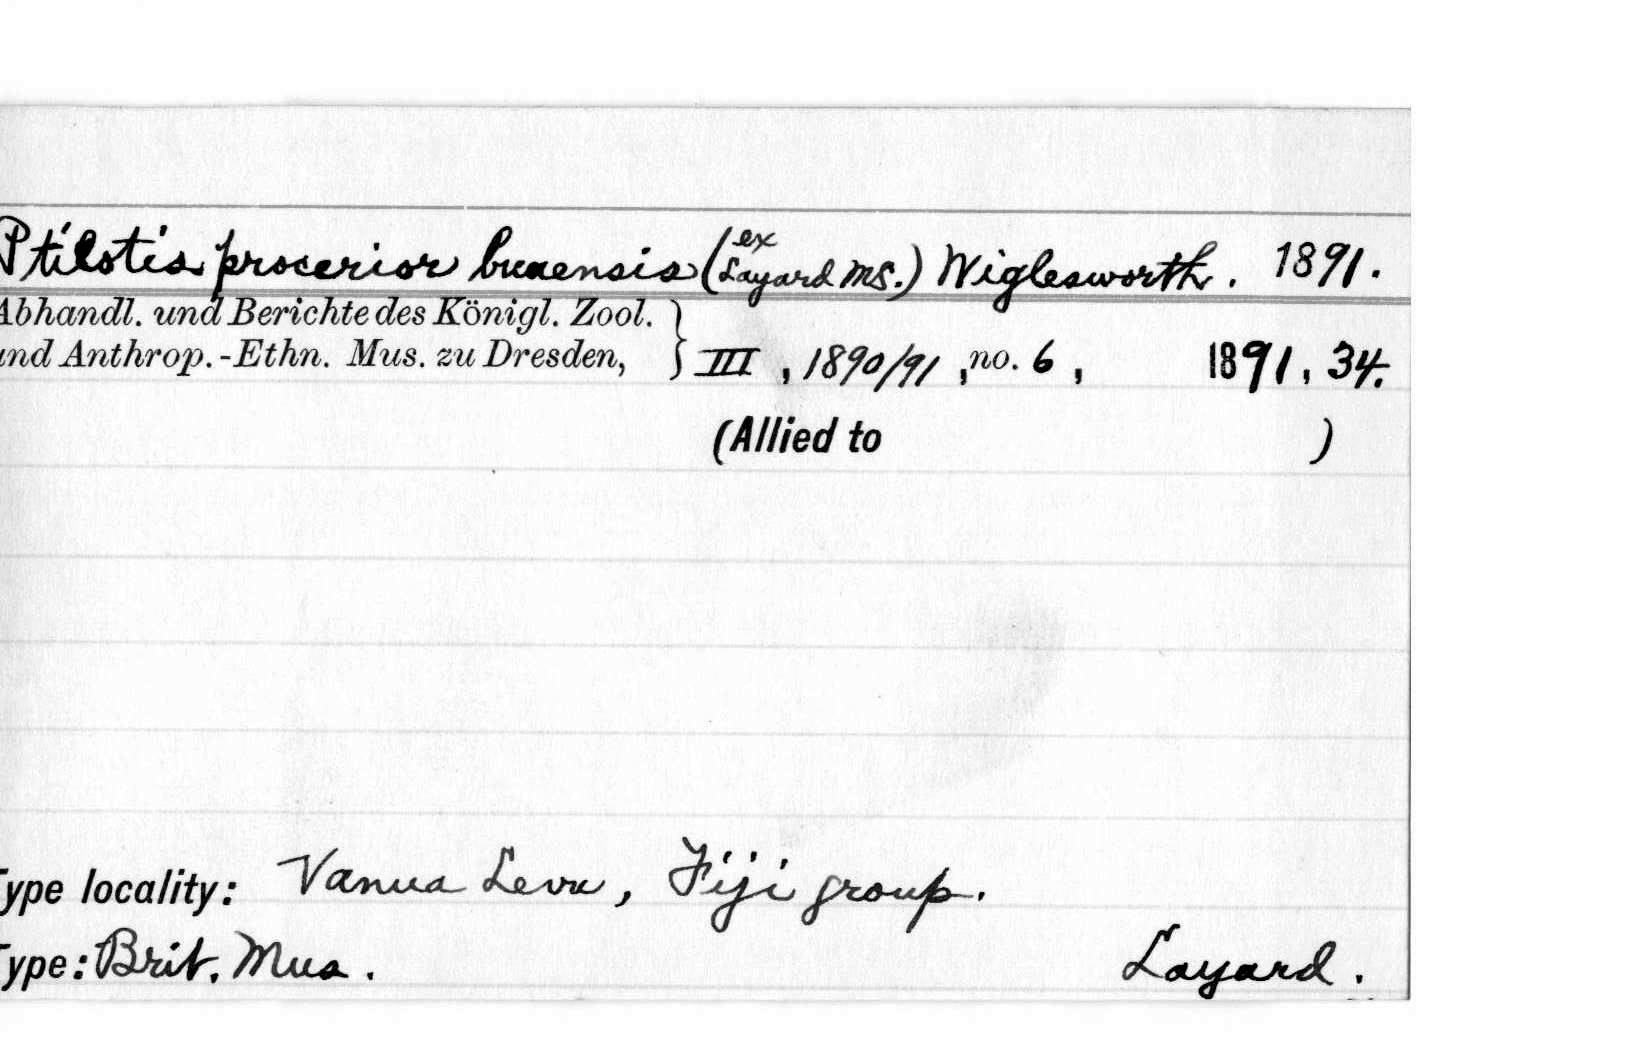 Ptilotis procerior buaensis (ex Layard MS.) Wiglesworth. 1891.
Abhandl. und Berichte des Königl. Zool.
und Anthrop.-Ethn. Mus. zu Dresden, } III, 1890/91, no. 6, 1891, 34.
(Allied to )
Type locality: Vanua Levu, Fiji group.
Type: Brit. Mus. Layard.